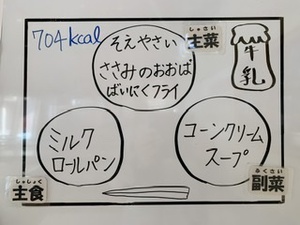 704kcal
そえやさい
ささみのおおば
ばいにくフライ
しゅさい
主菜
牛
乳
ミルク
ロールパン
コーンクリーム
スープ
しゅしょく
主食
ふくさい
副菜